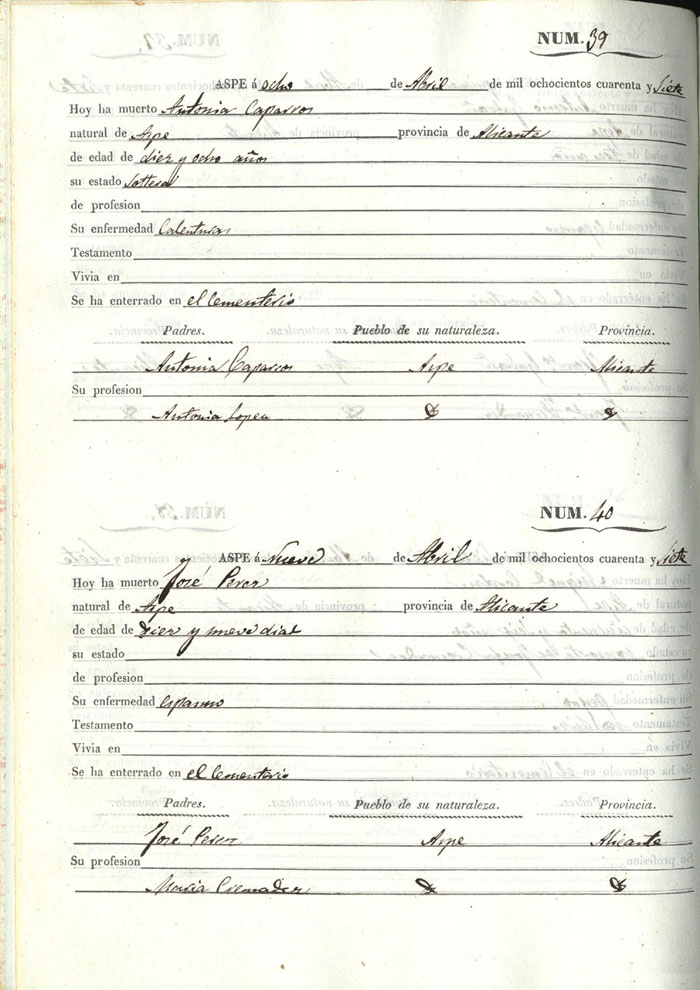 NUM. 39
ASPE á ocho de Abril de mil ochocientos cuarenta y Siete
Hoy ha muerto Antonia Caparros
natural de Aspe provincia de Alicante
de edad de diez y ocho años
su estado Soltera
de profesion
Su enfermedad Calenturas
Testamento
Vivia en
Se ha enterrado en el Cementerio
Padres. Pueblo de su naturaleza. Provincia.
Antonia Caparros Aspe Alicante
Su profesion
Antonia Lopez
NUM. 40
ASPE á Nueve de Abril de mil ochocientos cuarenta y Siete
Hoy ha muerto José Perez
natural de Aspe provincia de Alicante
de edad de diez y nueve dias
su estado
de profesion
Su enfermedad espasmo
Testamento
Vivia en
Se ha enterrado en el Cementerio
Padres. Pueblo de su naturaleza. Provincia.
José Perez Aspe Alicante
Su profesion
Maria Cremades